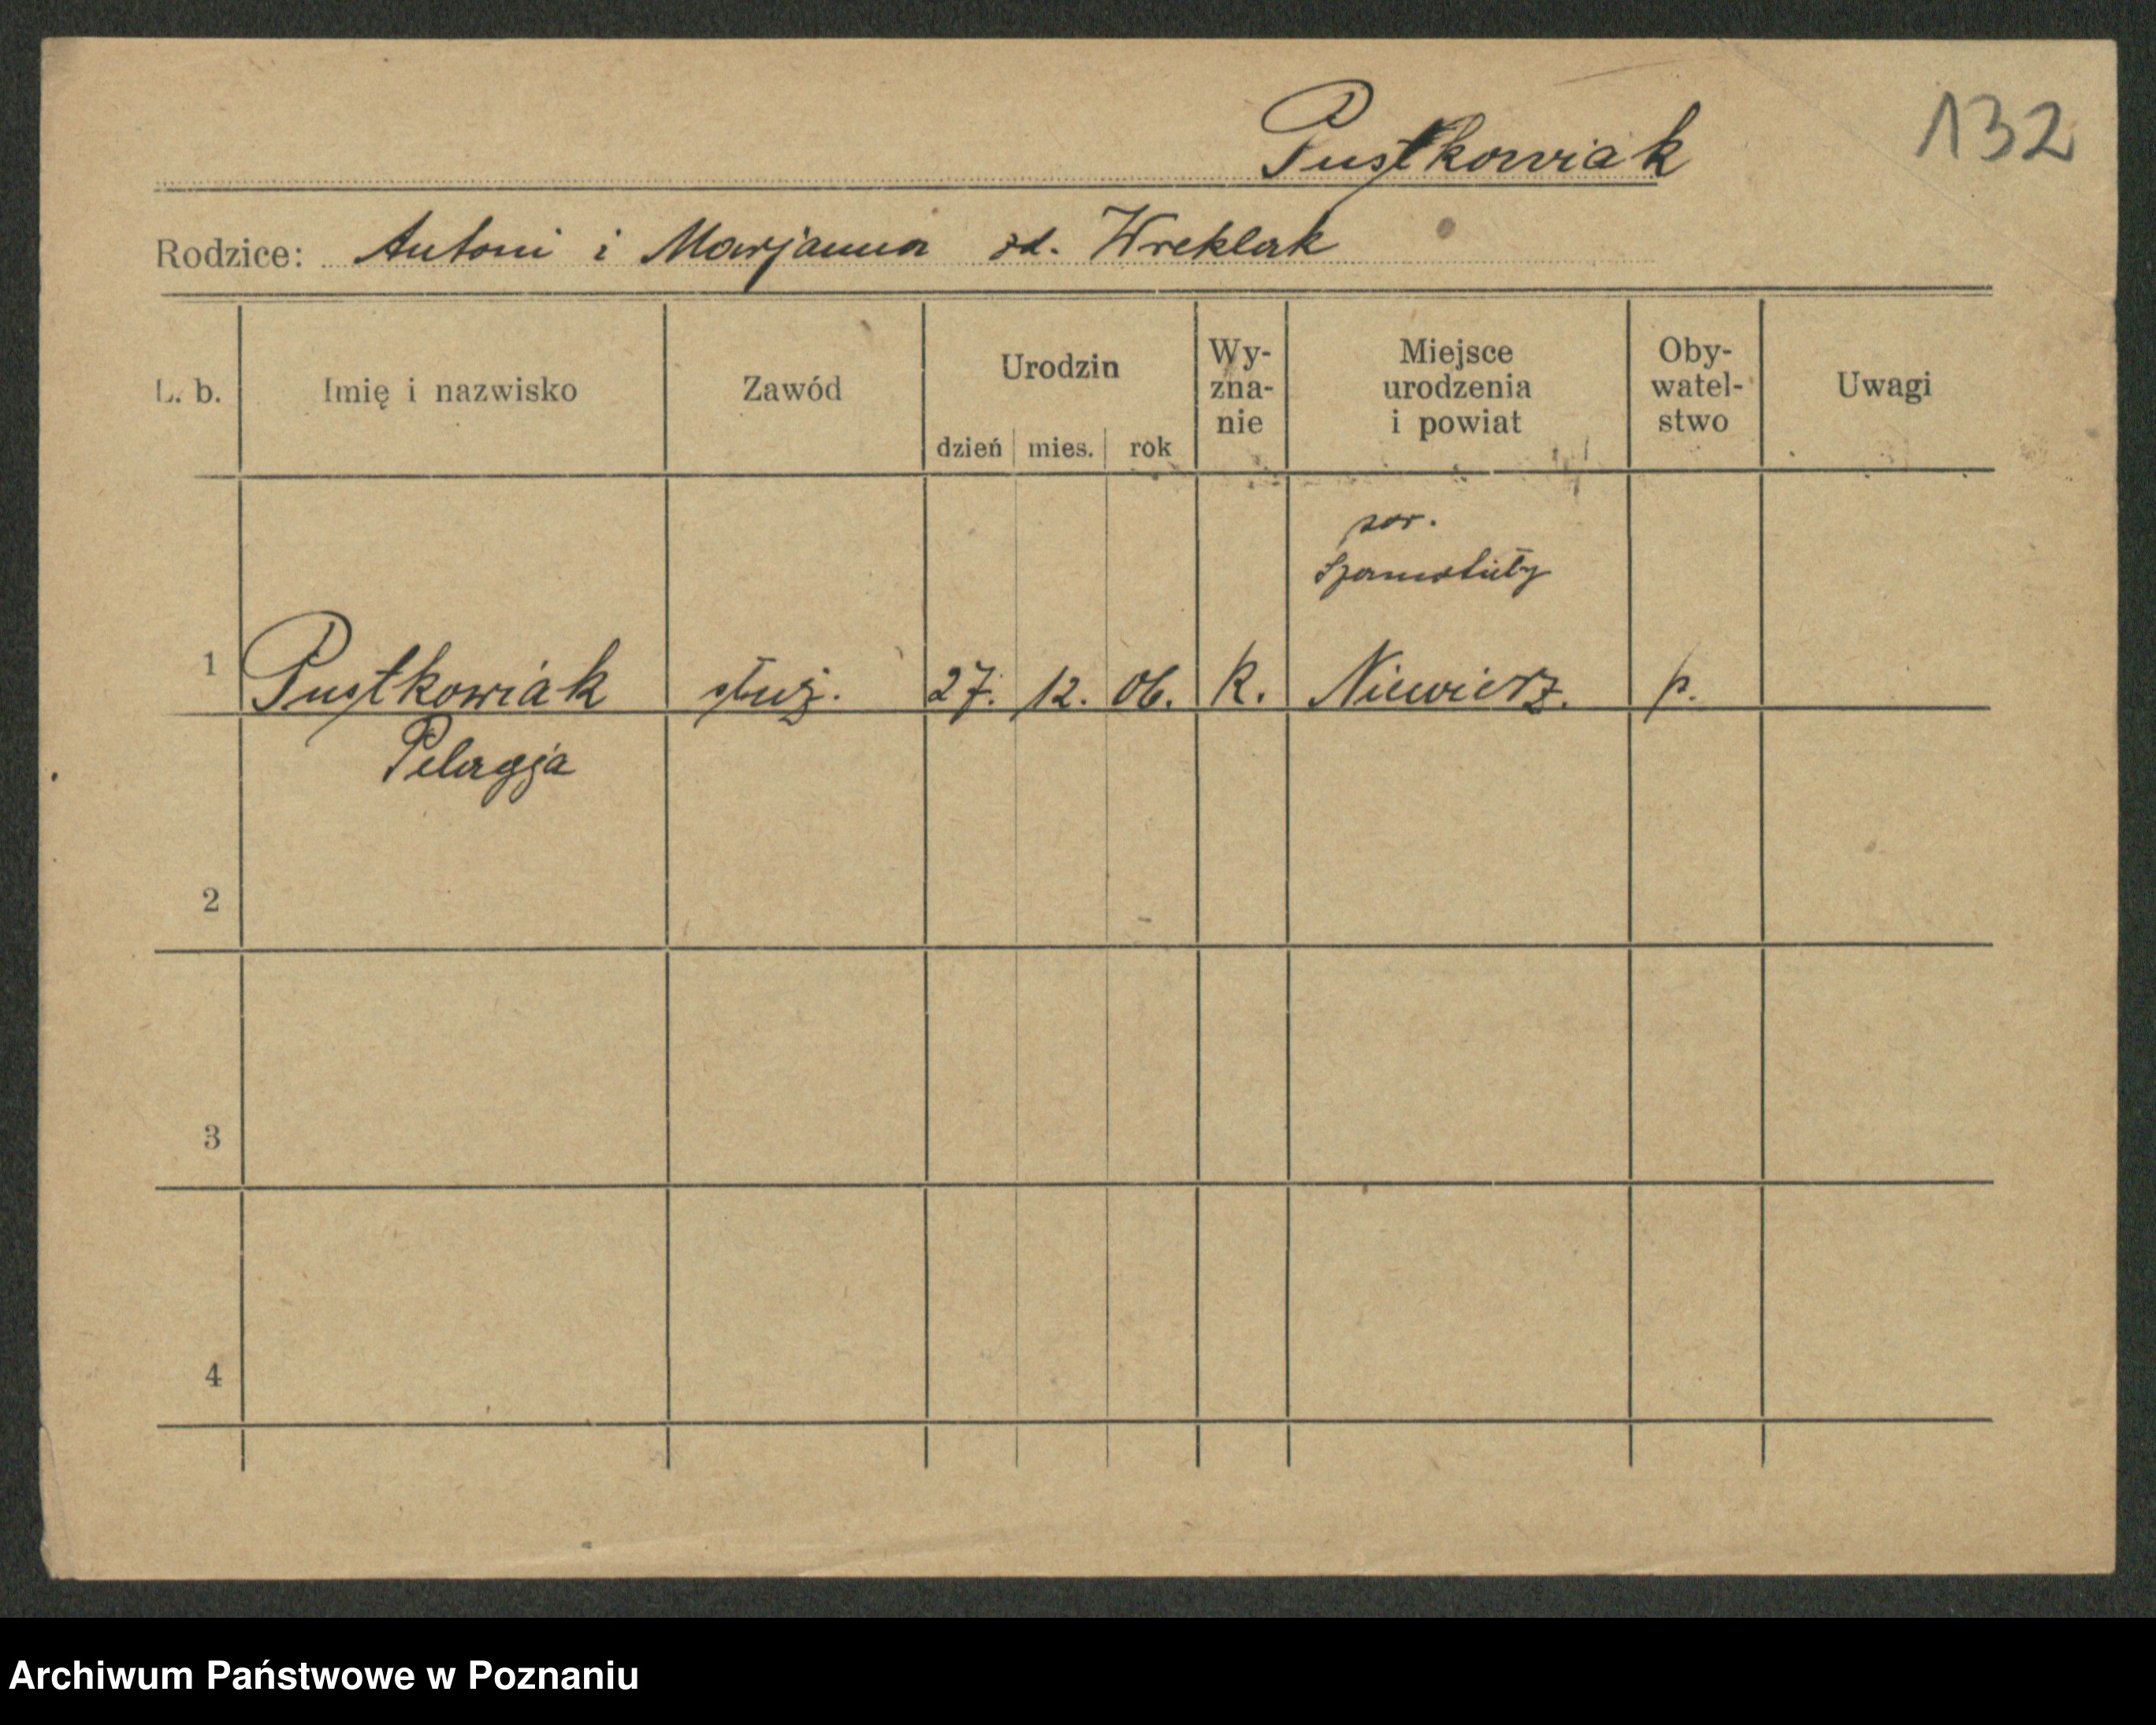 132
Pustkowiak
Rodzice: Antoni i Marjanna zd. Wreklak
L. b.
Imię i nazwisko
Zawód
Urodzin
dzień mies. rok
Wy-
zna-
nie
Miejsce
urodzenia
i powiat
Oby-
watel-
stwo
Uwagi
Szamotuły
1 Pustkowiak służ. 27. 12. 06. K. Niewierz. p.
Pelagja
2
3
4
Archiwum Państwowe w Poznaniu